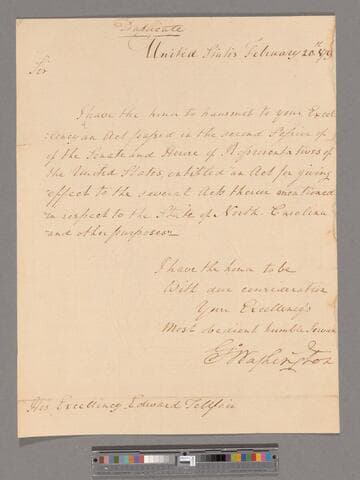 Duplicate
United States February 20th 1790
Sir
I have the honor to transmit to your Excel
lency an Act passed in the second Session of
of the Senate and House of Representatives of
the United States, entitled an Act for giving
effect to the several Acts therein mentioned
in respect to the State of North Carolina
and other purposes
I have the honor to be
With due consideration
Your Excellency's
Most obedient humble
Go Washington
His Excellency Edward Telfair